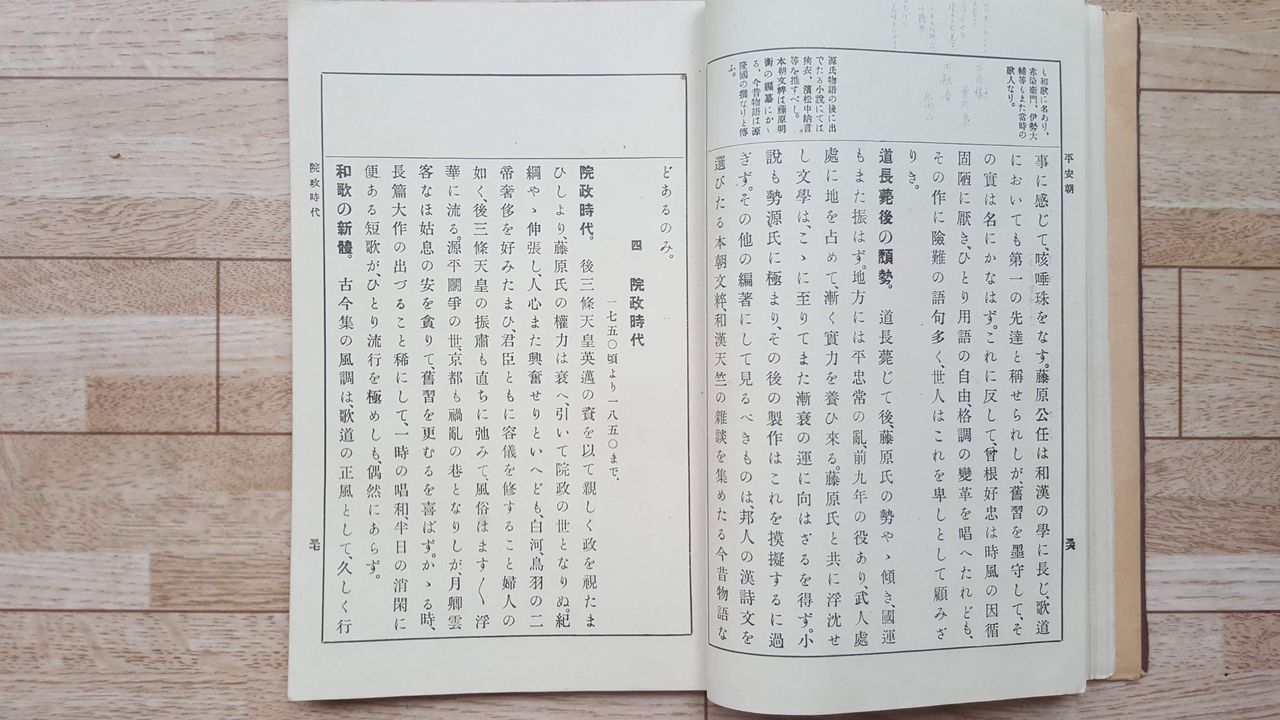 も和歌に名あり、
赤染衞門、伊勢大
輔等もまた當時の
歌人なり。
源氏物語の後に出
でたる小說にては
狹衣、濱松中納言
等を推すべし。
本朝文粹は藤原明
衡の編纂にかゝ
る、今昔物語は源
隆國の撰なりと傳
ふ。
平安朝
事に感じて、咳唾珠をなす。藤原公任は和漢の學に長じ、歌道
においても第一の先達と稱せられしが、舊習を墨守して、そ
の實は名にかなはず。これに反して、曾根好忠は時風の因循
固陋に厭き、ひとり用語の自由、格調の變革を唱へたれども、
その作に險難の語句多く、世人はこれを卑しとして顧みざ
りき。
道長薨後の頽勢。 道長薨じて後、藤原氏の勢やゝ傾き、國運
もまた振はず。地方には平忠常の亂、前九年の役あり、武人處
處に地を占めて、漸く實力を養ひ來る。藤原氏と共に浮沈せ
し文學は、こゝに至りてまた漸衰の運に向はざるを得ず。小
說も勢源氏に極まり、その後の製作はこれを摸擬するに過
ぎず。その他の編著にして見るべきものは、邦人の漢詩文を
選びたる本朝文粹、和漢天竺の雜談を集めたる今昔物語な
どあるのみ。
四 院政時代
一七五〇頃より一八五〇まで.
院政時代。 後三條天皇英邁の資を以て親しく政を視たま
ひしより、藤原氏の權力は衰へ、引いて院政の世となりぬ。紀
綱やゝ伸張し、人心また興奮せりといへども、白河、鳥羽の二
帝奢侈を好みたまひ、君臣ともに容儀を修すること婦人の
如く、後三條天皇の振肅も直ちに弛みて、風俗はます〱浮
華に流る。源平鬭爭の世、京都も禍亂の巷となりしが、月卿雲
客なほ姑息の安を貪りて、舊習を更むるを喜ばず。かゝる時、
長篇大作の出づること稀にして、一時の唱和、半日の消閑に
便ある短歌が、ひとり流行を極めしも、偶然にあらず。
和歌の新體。 古今集の風調は歌道の正風として、久しく行
院政時代